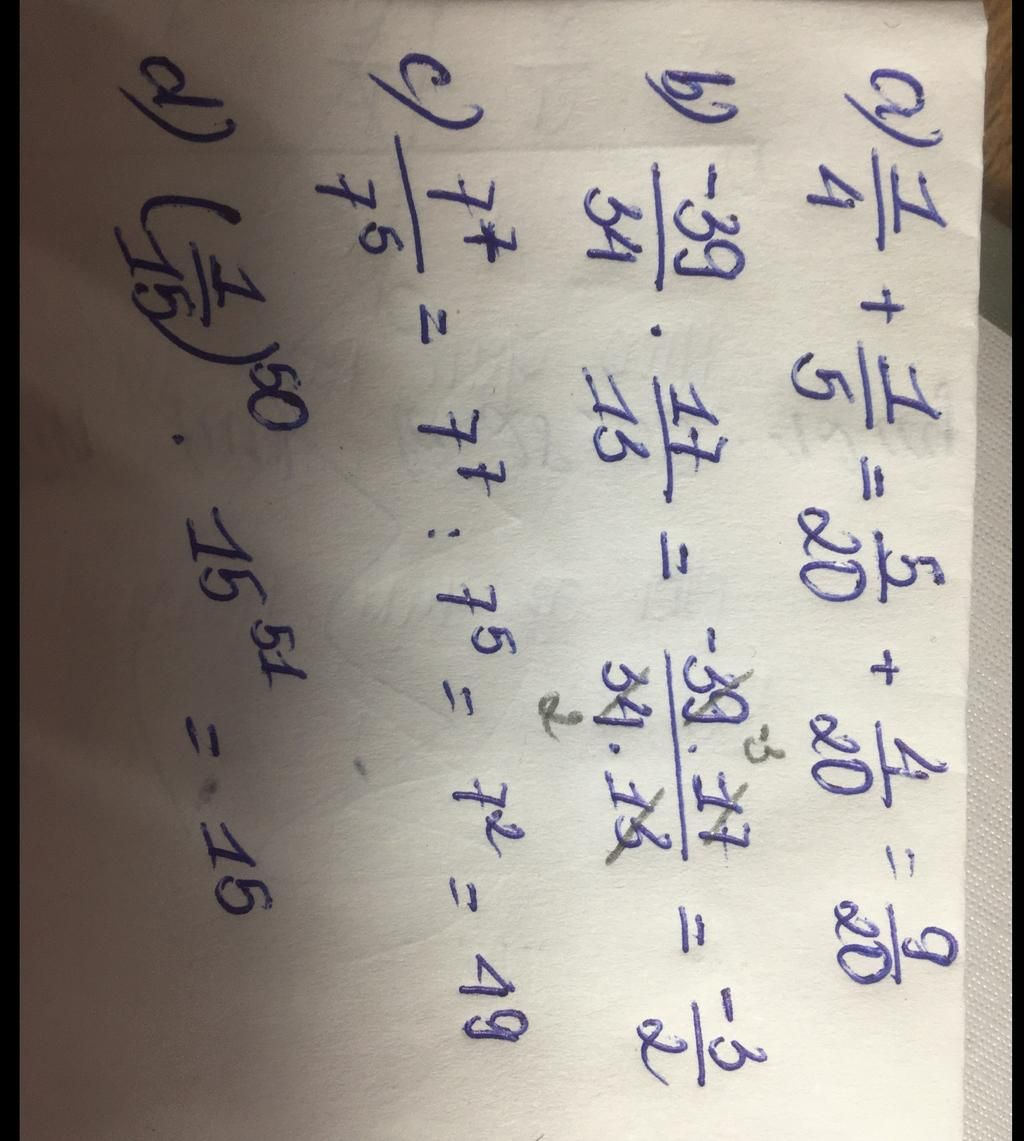 a) 1/4 + 1/5 = 5/20 + 4/20 = 9/20
b) -39/34 . 17/13 = -39 . 17/34 . 13 = -3/2
-3
2
c) 7^7/7^5 = 7^7 : 7^5 = 7^2 = 49
d) (1/15)^50 . 15^51 = 15